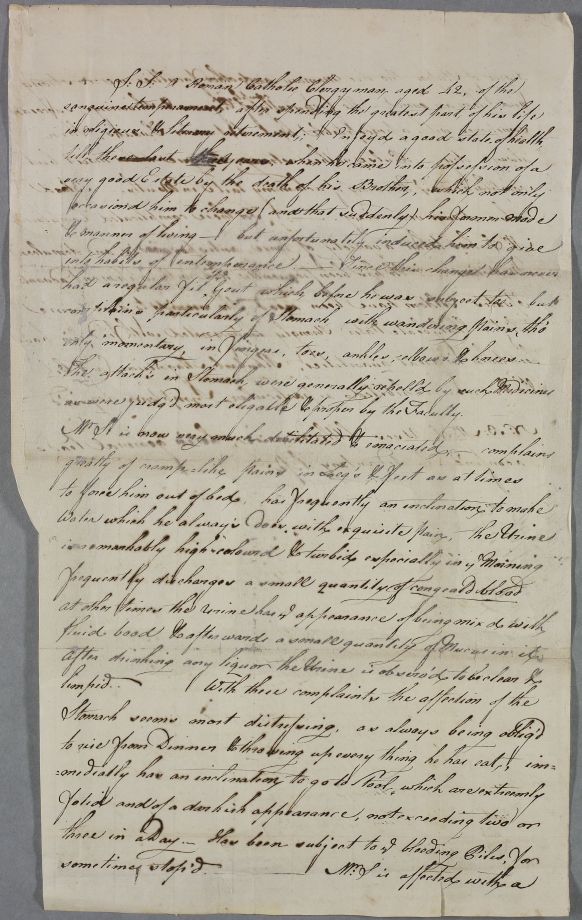 S: S: A Roman Catholic Clergyman aged 42, of the
sanguine temperament, after spending the greatest part of his life
in religious & literary retirement; Enjoy'd a good state of health
till these last years when he came into possession of a
very good Estate by the death of his Brother, which not only
occasion'd him to change (and that suddenly) his former Mode
& manner of living — but unfortunately induced him to give
into habits of intemperance — Since this change has never
had a regular Fit of Gout which before he was subject to — but
complains particularly of Stomach with wandering pains, tho'
only momentary, in fingers, toes, ankles, elbows & knees —
The attack's in Stomach were generally repell'd by such Medicines
as were judg'd most eligable & proper by the Faculty.
Mr. S is now very much debilitated & emaciated — complains
greatly of cramp-like pains in Leg's & feet as at times
to force him out of bed, has frequently an inclination to make
Water which he always does with exquisite pain, the Urine
is remarkably high-coloured & turbid especially in y Morning
frequently discharges a small quantity of congeald blood
at other times the Urine has y appearance of being mix'd with
fluid bood & afterward a small quantity of Mucus in it
After drinking any liquor the Urine is observ'd to be clear &
limpid — With these complaints the affection of the
Stomach seems most distressing, as always being oblig'd
to rise from Dinner & throwing up every thing he has eat, & im=
=mediatly has an inclination to go to Stool, which are extremely
fœtid and of a darkish appearance, not exceeding two or
three in a Day — Has been subject to y bleeding Piles, for
sometime stop'd — Mr. S is affected with a